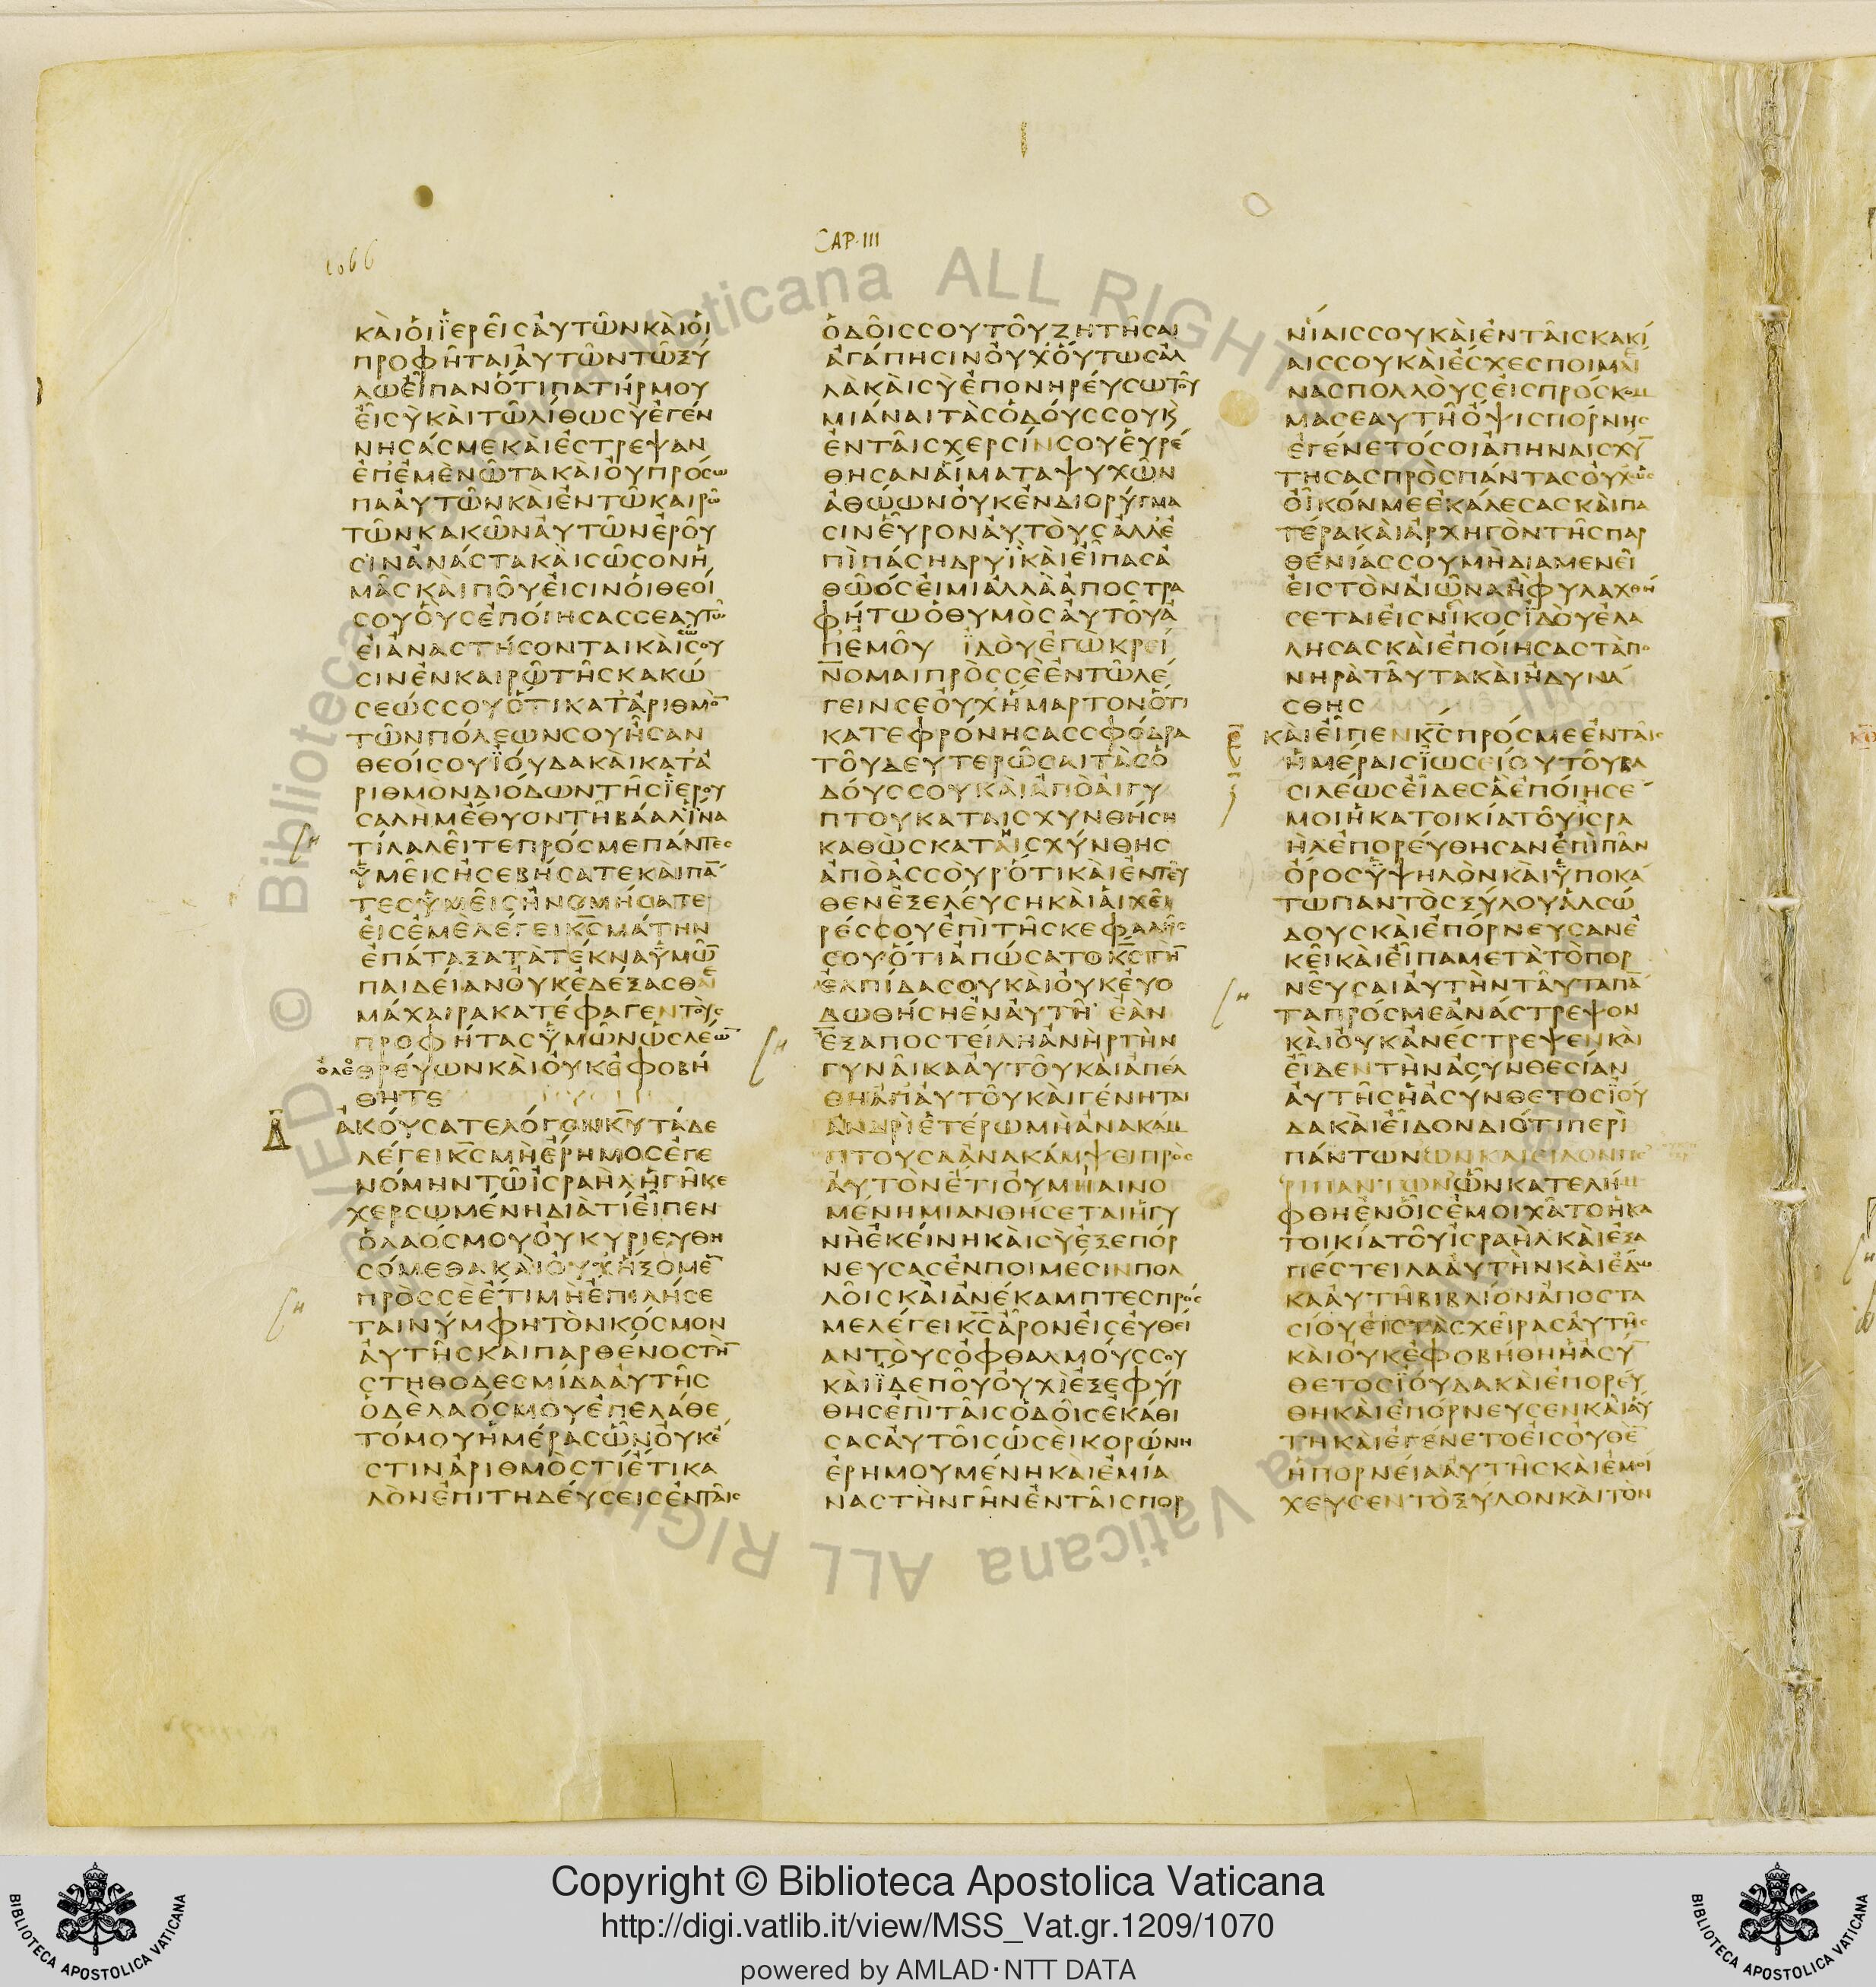 1066
CAP·III
ΚΑΙΟΙΪΕΡΕΙСΑΥΤΩΝΚΑΙΟΙ
ΠΡΟΦΗΤΑΙΑΥΤΩΝΤΩΞΥ
ΛΩΕΙΠΑΝΟΤΙΠΑΤΗΡΜΟΥ
ΕΙСΥΚΑΙΤΩΛΙΘΩСΥΕΓΕΝ
ΝΗСΑСΜΕΚΑΙΕСΤΡΕΨΑΝ
ΕΠΕΜΕΝΩΤΑΚΑΙΟΥΠΡΟСΩ
ΠΑΑΥΤΩΝΚΑΙΕΝΤΩΚΑΙΡΩ
ΤΩΝΚΑΚΩΝΑΥΤΩΝΕΡΟΥ
СΙΝΑΝΑСΤΑΚΑΙСΩСΟΝΗ
ΜΑСΚΑΙΠΟΥΕΙСΙΝΟΙΘΕΟΙ
СΟΥΟΥСΕΠΟΙΗСΑССΕΑΥΤΩ
ΕΙΑΝΑСΤΗСΟΝΤΑΙΚΑΙСΟΥ
СΙΝΕΝΚΑΙΡΩΤΗСΚΑΚΩ
СΕΩССΟΥΟΤΙΚΑΤΑΡΙΘΜΟ̅
ΤΩΝΠΟΛΕΩΝСΟΥΗСΑΝ
ΘΕΟΙСΟΥΪΟΥΔΑΚΑΙΚΑΤΑ
ΡΙΘΜΟΝΔΙΟΔΩΝΤΗСΪΕΡΟΥ
СΑΛΗΜΕΘΥΟΝΤΗΒΑΑΛΪΝΑ
ΤΙΛΑΛΕΙΤΕΠΡΟСΜΕΠΑΝΤΕС
ΫΜΕΙСΗСΕΒΗСΑΤΕΚΑΙΠΑ̅
ΤΕСΫΜΕΙСΗΝΟΜΗСΑΤΕ
ΕΙСΕΜΕΛΕΓΕΙΚ̅С̅ΜΑΤΗΝ
ΕΠΑΤΑΞΑΤΑΤΕΚΝΑΫΜΩ̅
ΠΑΙΔΕΙΑΝΟΥΚΕΔΕΞΑСΘΑΙ
ΜΑΧΑΙΡΑΚΑΤΕΦΑΓΕΝΤΟΥС
ΠΡΟΦΗΤΑСΫΜΩΝΩСΛΕΩ̅
ΟΛΕΘΡΕΥΩΝΚΑΙΟΥΚΕΦΟΒΗ
ΘΗΤΕ
Δ̅ ΑΚΟΥСΑΤΕΛΟΓΟΝΚ̅Υ̅ΤΑΔΕ
ΛΕΓΕΙΚ̅С̅ΜΗΕΡΗΜΟСΕΓΕ
ΝΟΜΗΝΤΩΙСΡΑΗΛΗΓΗΚΕ
ΧΕΡСΩΜΕΝΗΔΙΑΤΙΕΙΠΕΝ
ΟΛΑΟСΜΟΥΟΥΚΥΡΙΕΥΘΗ
СΟΜΕΘΑΚΑΙΟΥΧΗΞΟΜΕ̅
ΠΡΟССΕΕΤΙΜΗΕΠΙΛΗСΕ
ΤΑΙΝΥΜΦΗΤΟΝΚΟСΜΟΝ
ΑΥΤΗСΚΑΙΠΑΡΘΕΝΟСΤΗ̅
СΤΗΘΟΔΕСΜΙΔΑΑΥΤΗС
ΟΔΕΛΑΟСΜΟΥΕΠΕΛΑΘΕ
ΤΟΜΟΥΗΜΕΡΑСΩΝΟΥΚΕ
СΤΙΝΑΡΙΘΜΟСΤΙΕΤΙΚΑ
ΛΟΝΕΠΙΤΗΔΕΥСΕΙСΕΝΤΑΙС
ΟΔΟΙССΟΥΤΟΥΖΗΤΗСΑΙ
ΑΓΑΠΗСΙΝΟΥΧΟΥΤΩСΑΛ
ΛΑΚΑΙСΥΕΠΟΝΗΡΕΥСΩΤΟΥ
ΜΙΑΝΑΙΤΑСΟΔΟΥССΟΥΚ
ΕΝΤΑΙСΧΕΡСΙΝСΟΥΕΥΡΕ
ΘΗСΑΝΑΙΜΑΤΑΨΥΧΩΝ
ΑΘΩΩΝΟΥΚΕΝΔΙΟΡΥΓΜΑ
СΙΝΕΥΡΟΝΑΥΤΟΥСΑΛΛΕ
ΠΙΠΑСΗΔΡΥΪΚΑΙΕΙΠΑСΑ
ΘΩΟСΕΙΜΙΑΛΛΑΑΠΟСΤΡΑ
ΦΗΤΩΟΘΥΜΟСΑΥΤΟΥΑ
ΠΕΜΟΥ ΪΔΟΥΕΓΩΚΡΕΙ
ΝΟΜΑΙΠΡΟССΕΕΝΤΩΛΕ
ΓΕΙΝСΕΟΥΧΗΜΑΡΤΟΝΟΤΙ
ΚΑΤΕΦΡΟΝΗСΑССΦΟΔΡΑ
ΤΟΥΔΕΥΤΕΡΩСΑΙΤΑСΟ
ΔΟΥССΟΥΚΑΙΑΠΟΑΙΓΥ
ΠΤΟΥΚΑΤΑΙСΧΥΝΘΗСΗ
ΚΑΘΩСΚΑΤΗΙСΧΥΝΘΗС
ΑΠΟΑССΟΥΡΟΤΙΚΑΙΕΝΤΕΥ
ΘΕΝΕΞΕΛΕΥСΗΚΑΙΑΙΧΕΙ
ΡΕССΟΥΕΠΙΤΗСΚΕΦΑΛΗС
СΟΥΟΤΙΑΠΩСΑΤΟΚ̅С̅ΤΗ̅
ΕΛΠΙΔΑСΟΥΚΑΙΟΥΚΕΥΟ
ΔΩΘΗСΗΕΝΑΥΤΗ ΕΑΝ
ΕΞΑΠΟСΤΕΙΛΗΑΝΗΡΤΗΝ
ΓΥΝΑΙΚΑΑΥΤΟΥΚΑΙΑΠΕΛ
ΘΗΑΠΑΥΤΟΥΚΑΙΓΕΝΗΤΑΙ
ΑΝΔΡΙΕΤΕΡΩΜΗΑΝΑΚΑΜ
ΠΤΟΥСΑΑΝΑΚΑΜΨΕΙΠΡΟС
ΑΥΤΟΝΕΤΙΟΥΜΙΑΙΝΟ
ΜΕΝΗΜΙΑΝΘΗСΕΤΑΙΗΓΥ
ΝΗΕΚΕΙΝΗΚΑΙСΥΕΞΕΠΟΡ
ΝΕΥСΑСΕΝΠΟΙΜΕСΙΝΠΟΛ
ΛΟΙСΚΑΙΑΝΕΚΑΜΠΤΕСΠΡΟС
ΜΕΛΕΓΕΙΚ̅С̅ΑΡΟΝΕΙСΕΥΘΕΙ
ΑΝΤΟΥСΟΦΘΑΛΜΟΥССΟΥ
ΚΑΙΪΔΕΠΟΥΟΥΧΙΕΞΕΦΥΡ
ΘΗСΕΠΙΤΑΙСΟΔΟΙСΕΚΑΘΙ
СΑСΑΥΤΟΙСΩСΕΙΚΟΡΩΝΗ
ΕΡΗΜΟΥΜΕΝΗΚΑΙΕΜΙΑ
ΝΑСΤΗΝΓΗΝΕΝΤΑΙСΠΟΡ
ΝΙΑΙССΟΥΚΑΙΕΝΤΑΙСΚΑΚΙ
ΑΙССΟΥΚΑΙΕСΧΕСΠΟΙΜΕ
ΝΑСΠΟΛΛΟΥСΕΙСΠΡΟСΚΟΜ
ΜΑСΕΑΥΤΗΟΨΙСΠΟΡΝΗС
ΕΓΕΝΕΤΟСΟΙΑΠΗΝΑΙСΧΥ̅
ΤΗСΑСΠΡΟСΠΑΝΤΑСΟΥΧΩС
ΟΙΚΟΝΜΕΕΚΑΛΕСΑСΚΑΙΠΑ
ΤΕΡΑΚΑΙΑΡΧΗΓΟΝΤΗСΠΑΡ
ΘΕΝΙΑССΟΥΜΗΔΙΑΜΕΝΕΙ
ΕΙСΤΟΝΑΙΩΝΑΗΦΥΛΑΧΘΗ
СΕΤΑΙΕΙСΝΙΚΟСΪΔΟΥΕΛΑ
ΛΗСΑСΚΑΙΕΠΟΙΗСΑСΤΑΠΟ
ΝΗΡΑΤΑΥΤΑΚΑΙΗΔΥΝΑ
СΘΗС
Ε̅ ΚΑΙΕΙΠΕΝΚ̅С̅ΠΡΟСΜΕΕΝΤΑΙС
ΗΜΕΡΑΙСΪΩСΕΙΟΥΤΟΥΒΑ
СΙΛΕΩСΕΙΔΕСΑΕΠΟΙΗСΕ̅
ΜΟΙΗΚΑΤΟΙΚΙΑΤΟΥΙСΡΑ
ΗΛΕΠΟΡΕΥΘΗСΑΝΕΠΙΠΑΝ
ΟΡΟСΫΨΗΛΟΝΚΑΙΫΠΟΚΑ
ΤΩΠΑΝΤΟСΞΥΛΟΥΑΛСΩ
ΔΟΥСΚΑΙΕΠΟΡΝΕΥСΑΝΕ
ΚΕΙΚΑΙΕΙΠΑΜΕΤΑΤΟΠΟΡ
ΝΕΥСΑΙΑΥΤΗΝΤΑΥΤΑΠΑ̅
ΤΑΠΡΟСΜΕΑΝΑСΤΡΕΨΟΝ
ΚΑΙΟΥΚΑΝΕСΤΡΕΨΕΝΚΑΙ
ΕΙΔΕΝΤΗΝΑСΥΝΘΕСΙΑΝ
ΑΥΤΗСΗΑСΥΝΘΕΤΟСΪΟΥ
ΔΑΚΑΙΕΙΔΟΝΔΙΟΤΙΠΕΡΙ
ΠΑΝΤΩΝΩΝΚΑΙΕΙΔΟΝΠΕ
ΡΙΠΑΝΤΩΝΩΝΚΑΤΕΛΗΜ
ΦΘΗΕΝΟΙСΕΜΟΙΧΑΤΟΗΚΑ
ΤΟΙΚΙΑΤΟΥΙСΡΑΗΛΚΑΙΕΞΑ
ΠΕСΤΕΙΛΑΑΥΤΗΝΚΑΙΕΔΩ
ΚΑΑΥΤΗΒΙΒΛΙΟΝΑΠΟСΤΑ
СΙΟΥΕΙСΤΑСΧΕΙΡΑСΑΥΤΗС
ΚΑΙΟΥΚΕΦΟΒΗΘΗΗΑСΥ̅
ΘΕΤΟСΪΟΥΔΑΚΑΙΕΠΟΡΕΥ
ΘΗΚΑΙΕΠΟΡΝΕΥСΕΝΚΑΙΑΥ
ΤΗΚΑΙΕΓΕΝΕΤΟΕΙСΟΥΘΕ̅
ΗΠΟΡΝΕΙΑΑΥΤΗСΚΑΙΕΜΟΙ
ΧΕΥСΕΝΤΟΞΥΛΟΝΚΑΙΤΟΝ
Copyright © Biblioteca Apostolica Vaticana
http://digi.vatlib.it/view/MSS_Vat.gr.1209/1070
powered by AMLAD·NTT DATA
BIBLIOTECA APOSTOLICA VATICANA
BIBLIOTECA APOSTOLICA VATICANA